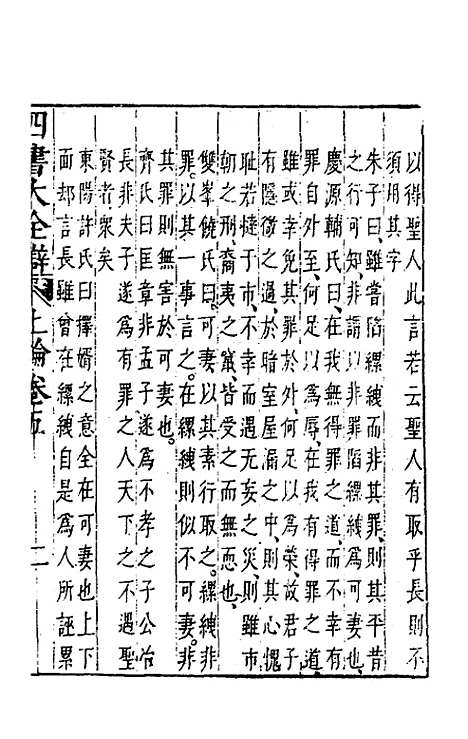 以得聖人此言若云聖人有取乎長則不
須用其字
朱子曰雖嘗陷縲絏而非其罪則其平昔
之行可知非謂以非罪陷縲絏爲可妻也
慶源輔氏曰在我無得罪之道而不幸有
罪自外至何足以爲辱在我有得罪之道
雖或幸免其罪於外何足以爲榮故君子
有隱微之過於暗室屋漏之中則其心愧
耻若撻于市不幸而遇无妄之災則雖市
朝之刑裔夷之竄皆受之而無恧也
雙峯饒氏曰可妻以其素行取之縲絏非
罪以其一事言之在縲絏則似不可妻非
其罪則無害於可妻也
齊氏曰匡章非孟子遂爲不孝之子公冶
長非夫子遂爲有罪之人天下之不遇聖
賢者衆矣
東陽許氏曰擇婿之意全在可妻也上下
面却言長雖曾在縲絏自是爲人所誣累
四書大全辯 上論卷五 二